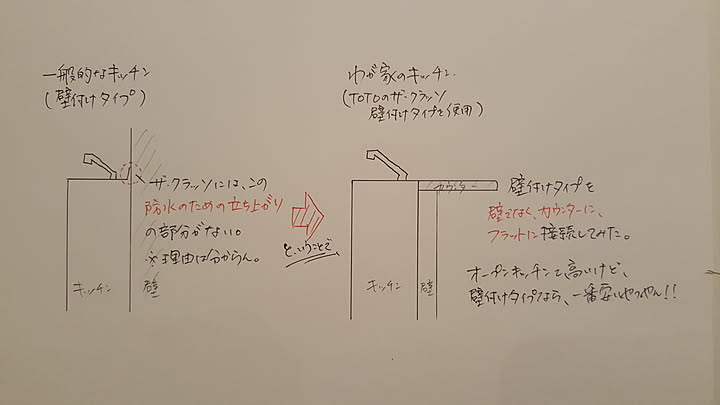 一般的なキッチン
(壁付けタイプ)
ザ・クラッソには、この
防水のための立ち上がり
の部分がない。
※理由は分からん。
キッチン
壁
ということで
わが家のキッチン.
(TOTOのザ・クラッソ
壁付けタイプを使用)
カウンター
キッチン
壁
壁付けタイプを
壁でなく、カウンターに、
フラットに接続してみた。
オープンキッチンて高いけど、
壁付けタイプなら、一番安いやつやん!!